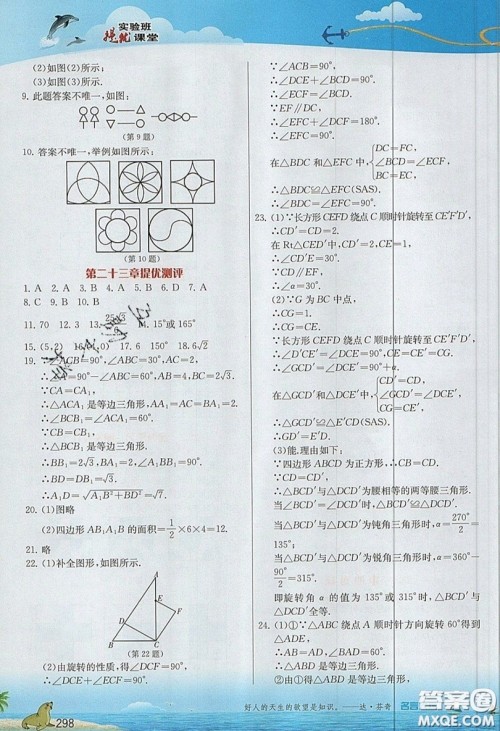 实验班
提优课堂
(2)如图(2)所示;
(3)如图(3)所示.
9. 此题答案不唯一,如图:
(第9题)
10. 答案不唯一,举例如图所示:
(第10题)
第二十三章提优测评
1. A 2. D 3. A 4. A 5. B 6. D 7. A
8. C 9. B 10. B
11. 70 12. 3 13. 14. 15°或165°
15. (5,2) 16. 17. 150 18. 6√2
19. ∵∠ACB=90°,∠ABC=30°,AC=2,
∴∠A=90°-∠ABC=60°,AB=4,BC=2√3.
∵CA=CA₁,
∴△ACA₁是等边三角形.
∴AA₁=AC=BA₁=2.
∴∠BCB₁=∠ACA₁=60°.
∵CB=CB₁,
∴△BCB₁是等边三角形.
∴BB₁=2√3,BA₁=2,∠A₁BB₁=90°.
∴BD=DB₁=√3.
∴A₁D=√(A₁B²+BD²)=√7.
20. (1)图略
(2)四边形AB₁A₁B的面积=1/2×6×4=12.
21. 略
22. (1)补全图形,如图所示.
A
E
F
D
B
C
(第22题)
(2)由旋转的性质,得∠DCF=90°,
∴∠DCE+∠ECF=90°.
∵∠ACB=90°,
∴∠DCE+∠BCD=90°.
∴∠ECF=∠BCD.
∵EF∥DC,
∴∠EFC+∠DCF=180°.
∴∠EFC=90°.
在△BDC和△EFC中,{DC=FC, ∠BCD=∠ECF, BC=EC,
∴△BDC≌△EFC(SAS).
∴∠BDC=∠EFC=90°.
23. (1)∵长方形CEFD绕点C顺时针旋转至CE'F'D',
∴CD'=CD=2.
在Rt△CED'中,CD'=2,CE=1,
∴∠CD'E=30°.
∵CD∥EF,
∴∠α=30°.
(2)∵G为BC中点,
∴CG=1.
∴CG=CE.
∵长方形CEFD绕点C顺时针旋转至CE'F'D',
∴∠D'CE'=∠DCE=90°,CE=CE'=CG.
∴∠GCD'=∠DCE'=90°+α.
在△GCD'和△E'CD中,{CD'=CD, ∠GCD'=∠DCE', CG=CE',
∴△GCD'≌△E'CD(SAS).
∴GD'=E'D.
(3)能.理由如下:
∵四边形ABCD为正方形,∴CB=CD.
∵CD=CD',
∴△BCD'与△DCD'为腰相等的两等腰三角形.
当∠BCD'=∠DCD'时,△BCD'≌△DCD'.
当△BCD'与△DCD'为钝角三角形时,α=270°/2=135°;
当△BCD'与△DCD'为锐角三角形时,α=360°-90°/2=315°.
即旋转角α的值为135°或315°时,△BCD'与△DCD'全等.
24. (1)①∵△ABC绕点A顺时针方向旋转60°得到△ADE,
∴AB=AD,∠BAD=60°.
∴△ABD是等边三角形.
298
好人的天生的欲望是知识。——达·芬奇
答案圈
MXQE.COM